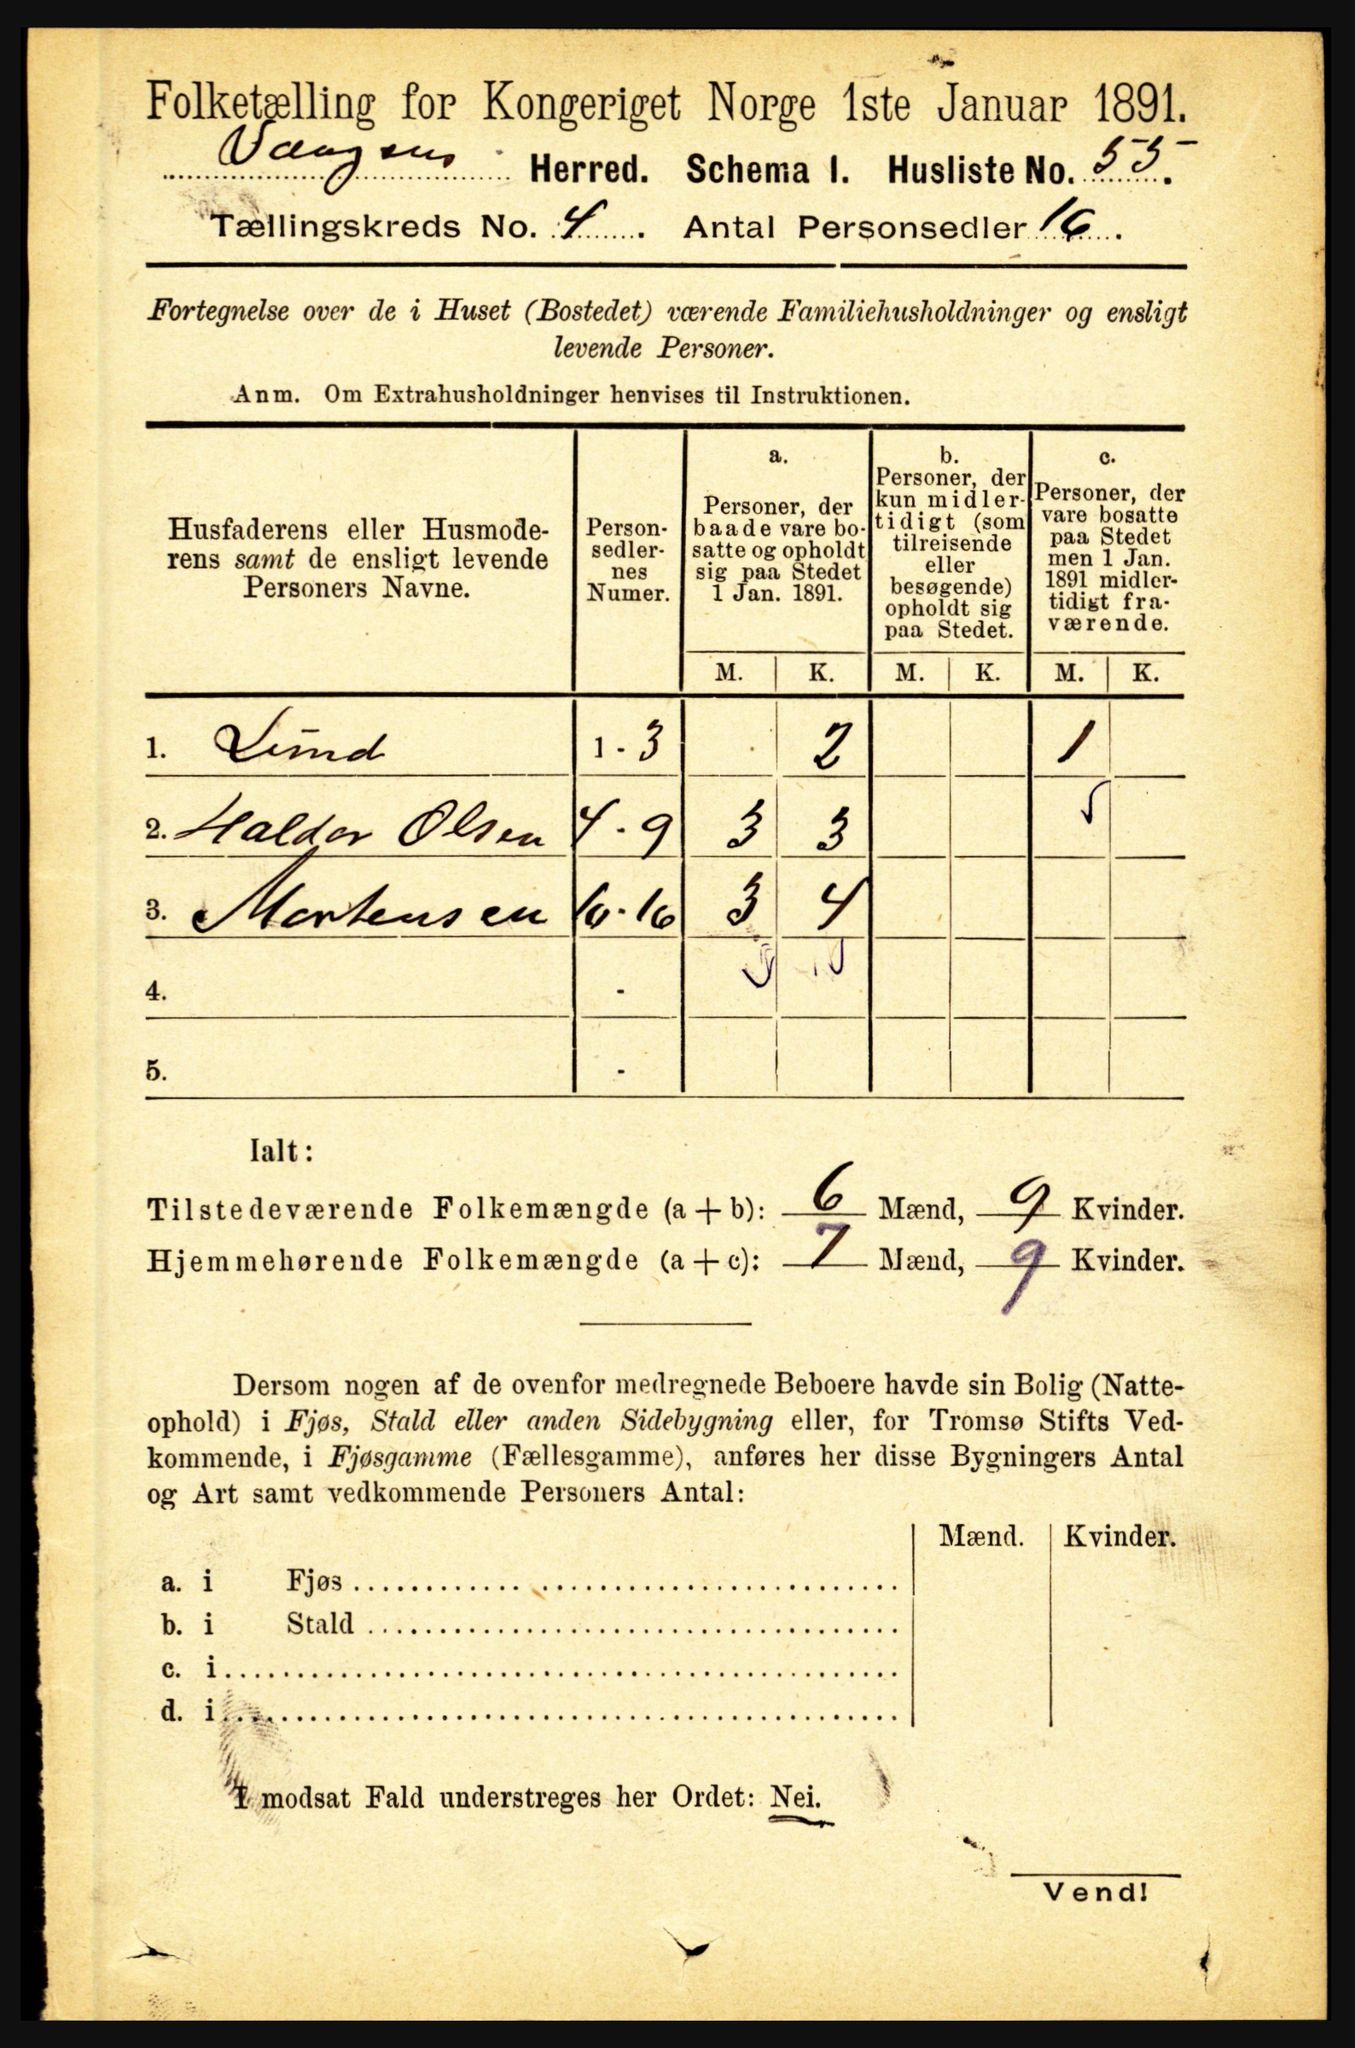 Folketælling for Kongeriget Norge 1ste Januar 1891.
Vaagens Herred. Schema I. Husliste No. 55.
Tællingskreds No. 4. Antal Personsedler 16.
Fortegnelse over de i Huset (Bostedet) værende Familiehusholdninger og ensligt
levende Personer.
Anm. Om Extrahusholdninger henvises til Instruktionen.
Husfaderens eller Husmode-
rens samt de ensligt levende
Personers Navne.
Person-
sedler-
nes
Numer.
a.
Personer, der
baade vare bo-
satte og opholdt
sig paa Stedet
1 Jan. 1891.
b.
Personer, der
kun midler-
tidigt (som
tilreisende
eller
besøgende)
opholdt sig
paa Stedet.
c.
Personer, der
vare bosatte
paa Stedet
men 1 Jan.
1891 midler-
tidigt fra-
værende.
M. K. M. K. M. K.
1. Lund 1-3 2 1
2. Haldor Olsen 4-9 3 3
3. Mortensen 10-16 3 4
4. -
5. -
Ialt:
Tilstedeværende Folkemængde (a + b): 6 Mænd, 9 Kvinder.
Hjemmehørende Folkemængde (a + c): 7 Mænd, 9 Kvinder.
Dersom nogen af de ovenfor medregnede Beboere havde sin Bolig (Natte-
ophold) i Fjøs, Stald eller anden Sidebygning eller, for Tromsø Stifts Ved-
kommende, i Fjøsgamme (Fællesgamme), anføres her disse Bygningers Antal
og Art samt vedkommende Personers Antal:
Mænd. Kvinder.
a. i Fjøs
b. i Stald
c. i
d. i
I modsat Fald understreges her Ordet: Nei.
Vend!